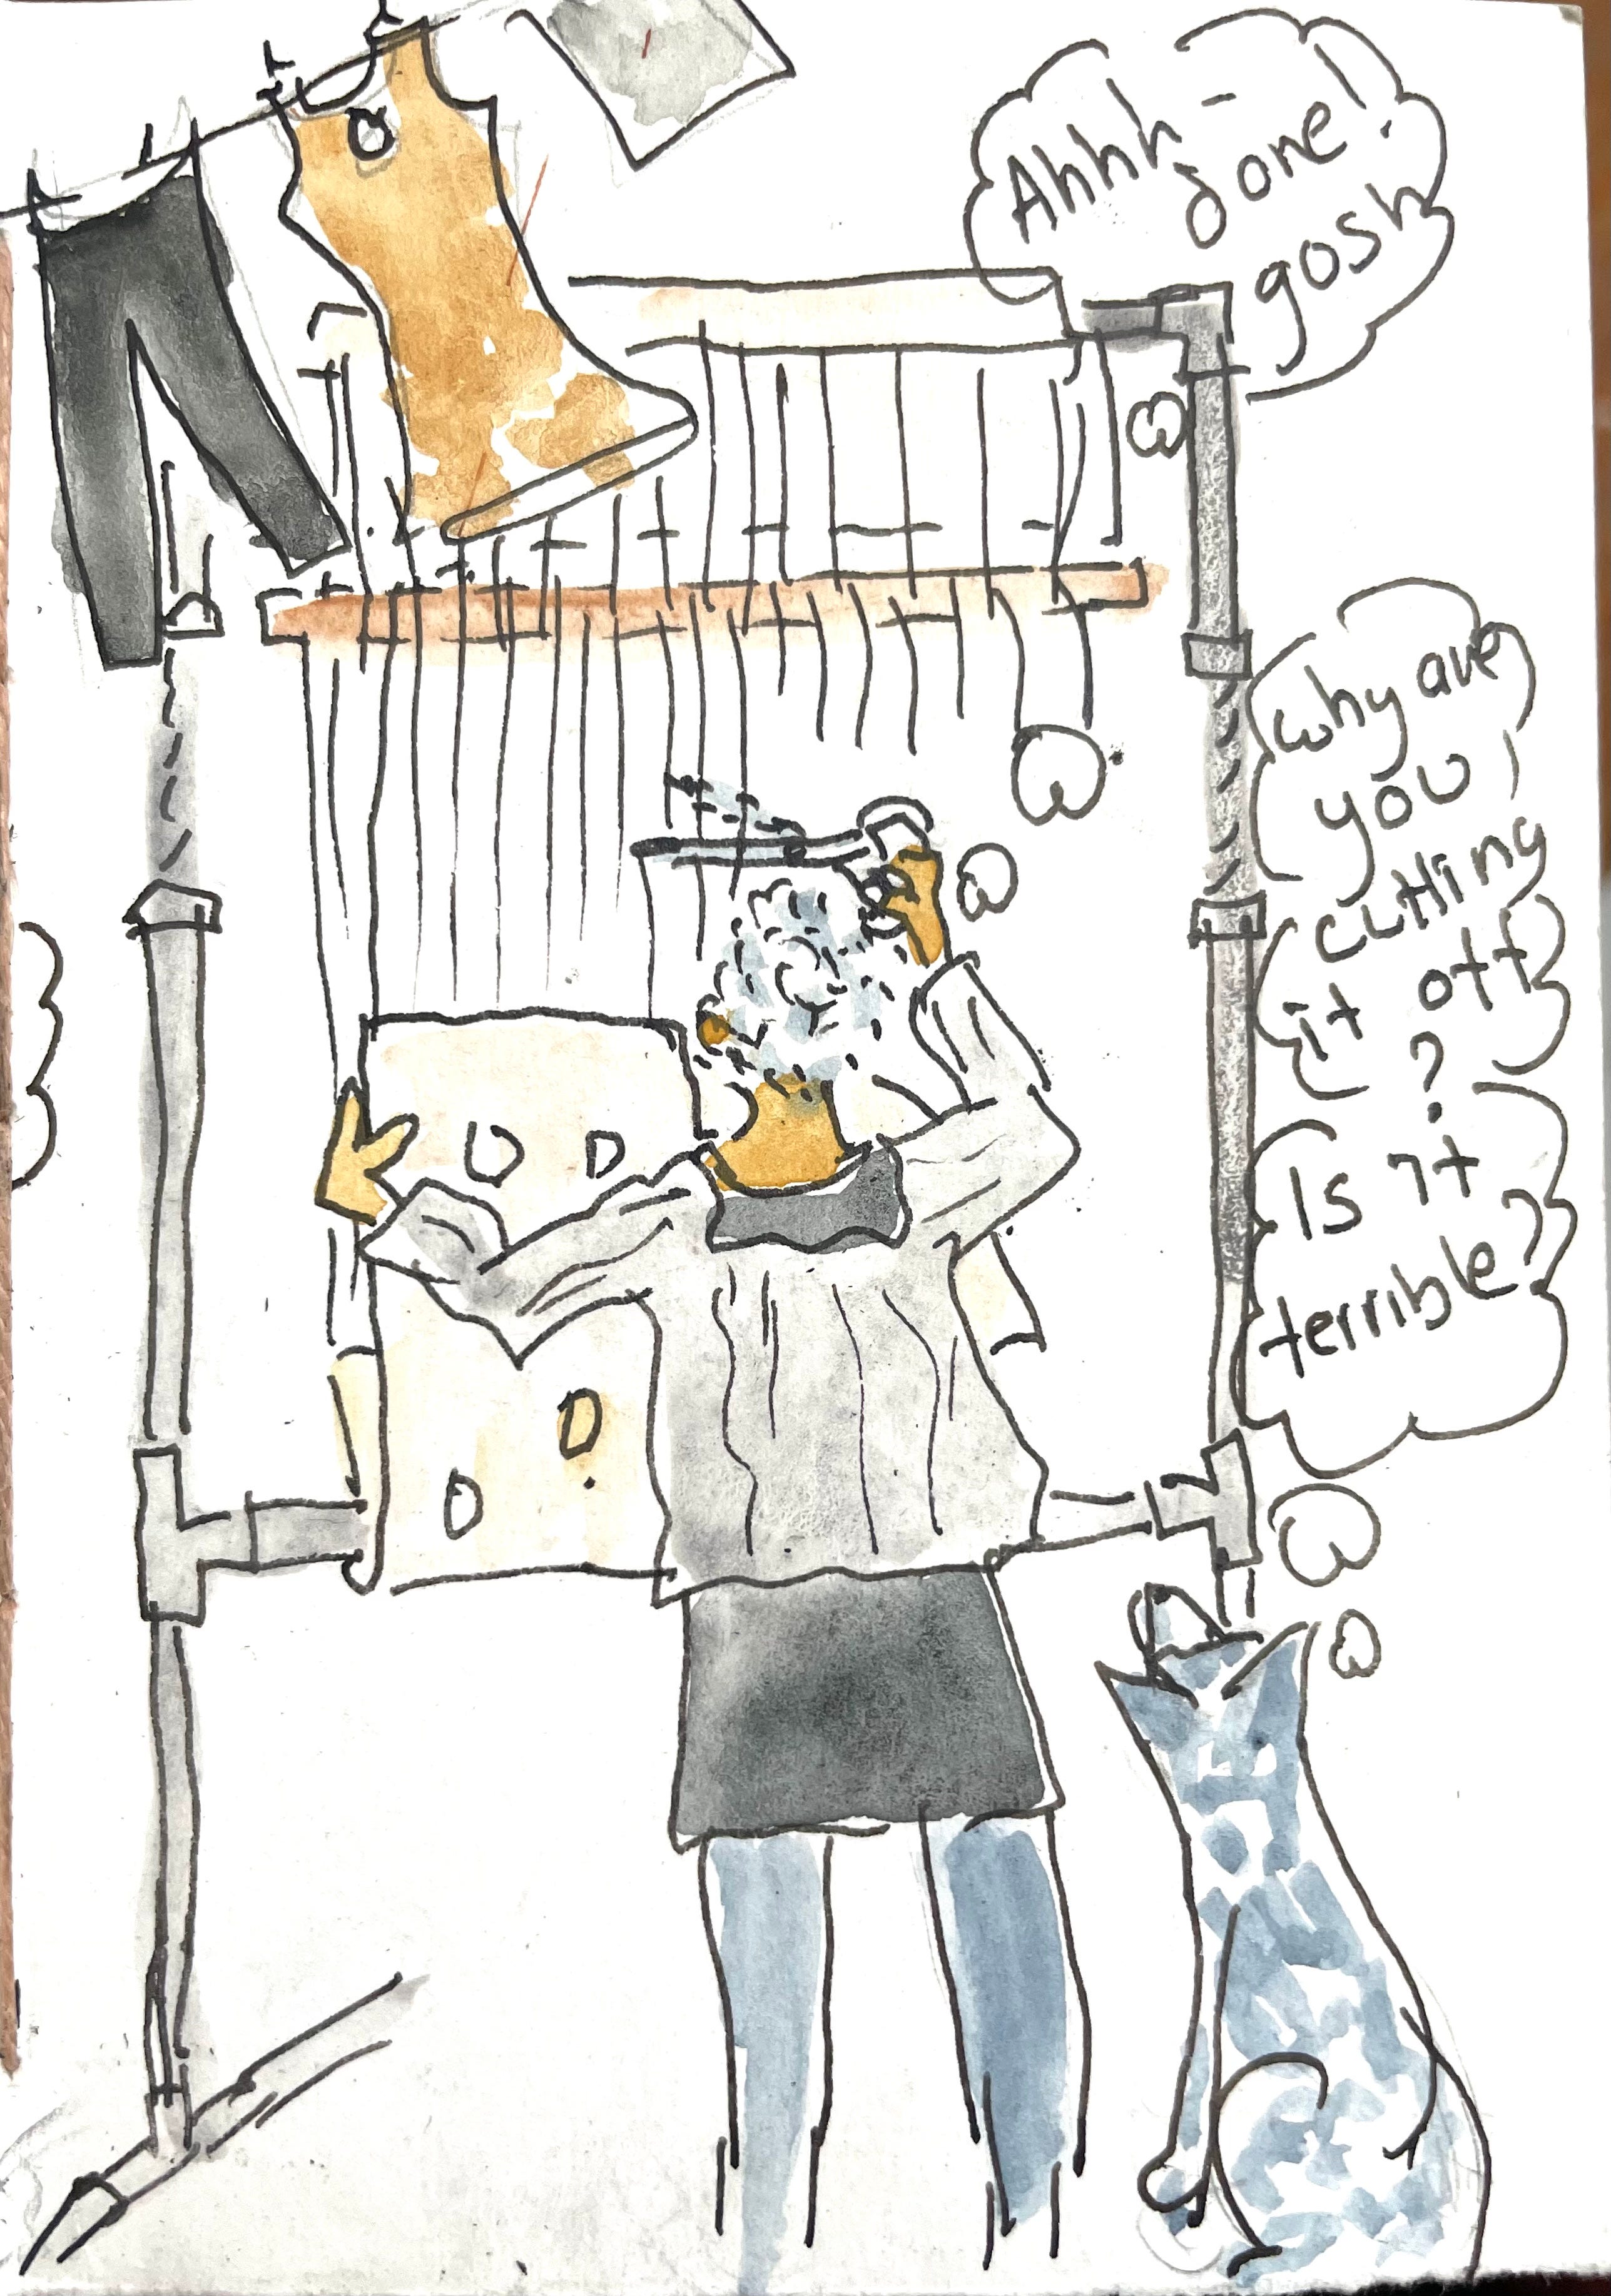 Ahhh -
done!
gosh
why are
you
cutting
it off
?
Is it
terrible?